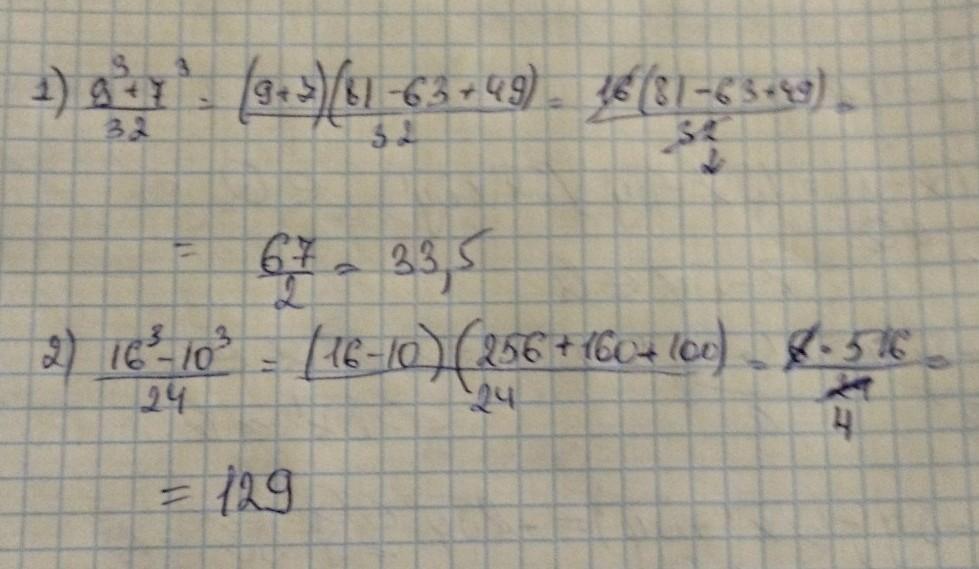 1) 9³+7³/32 = (9+7)(81-63+49)/32 = 16(81-63+49)/32 2 =
= 67/2 = 33,5
2) 16³-10³/24 = (16-10)(256+160+100)/24 = 6·516/24 4 =
= 129